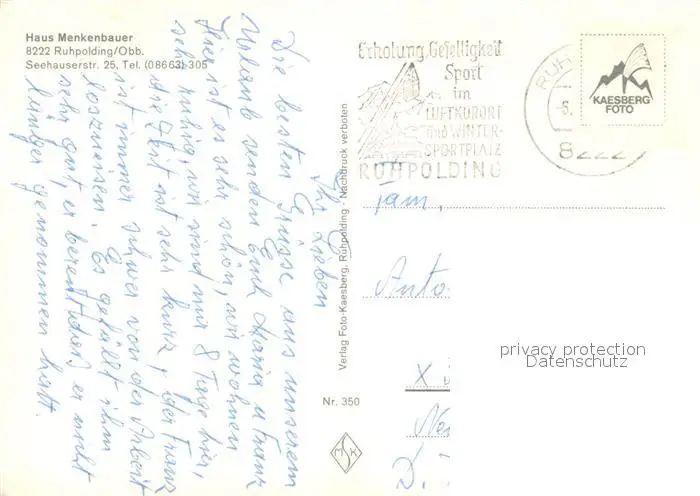 Haus Menkenbauer
8222 Ruhpolding/Obb.
Seehauserstr. 25, Tel. (08663) 305
Ihr Lieben
Die besten Grüsse aus unserem
Urlaub senden Euch Maria u Franz
Hier ist es sehr schön, wir wohnen
sehr ruhig, wir sind nur 8 Tage hier,
die Zeit ist sehr kurz, der Franz
ist immer schwer von der Arbeit
loszureisen. Es gefällt ihm
sehr gut, er bereut daß er nicht
länger genommen hat.
Verlag Foto-Kaesberg, Ruhpolding - Nachdruck verboten
Nr. 350
MSK
Erholung, Geselligkeit
Sport
im
LUFTKURORT
und WINTER-
SPORTPLATZ
RUHPOLDING
RUH
8222
KAESBERG
FOTO
Fam.,
Anto
privacy protection
Datenschutz